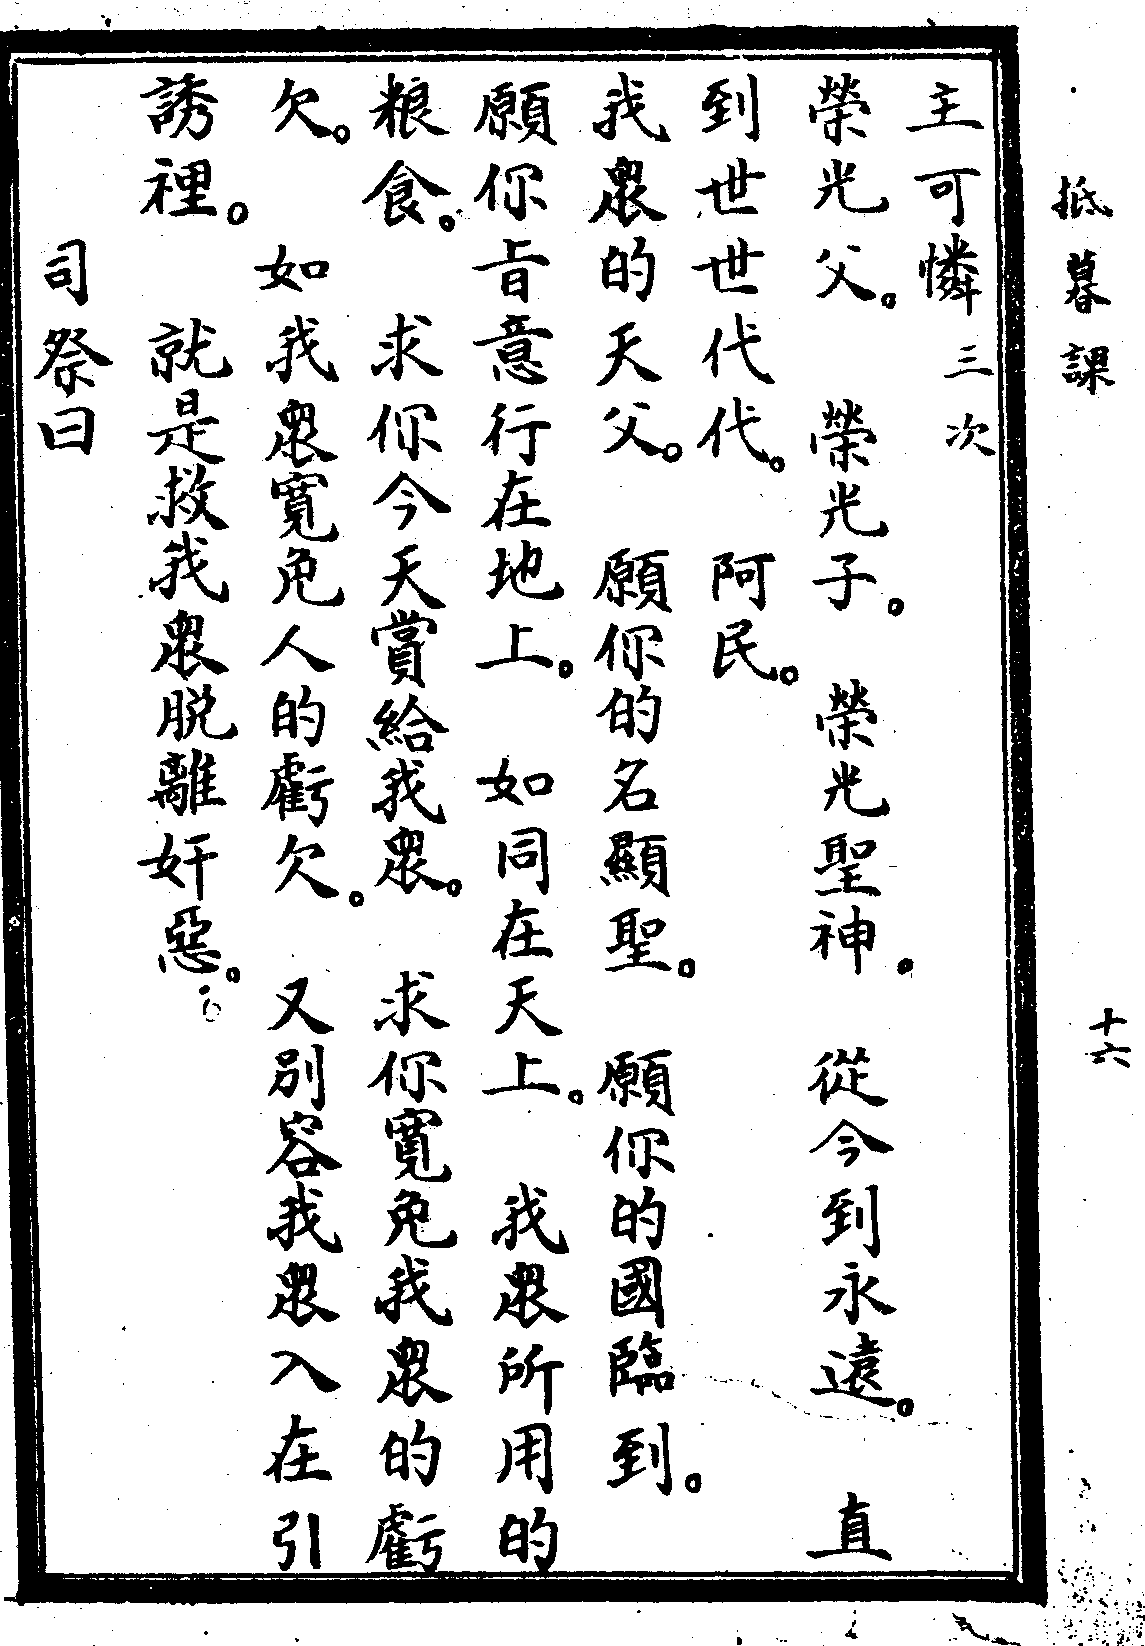 抵暮課
十六
主可憐三次
榮光父。　榮光子。　榮光聖神。　從今到永遠。　直
到世世代代。　阿民。
我眾的天父。　願你的名顯聖。　願你的國臨到。
願你旨意行在地上。　如同在天上。　我眾所用的
粮食。　求你今天賞給我眾。　求你寬免我眾的虧
欠。　如我眾寬免人的虧欠。　又別容我眾入在引
誘裡。　就是救我眾脱離奸惡。
司祭曰